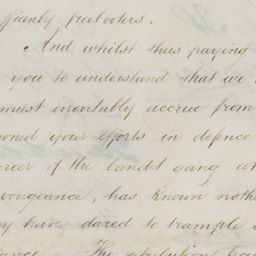 ffianly freebooters.
And whilst thus paying
you to understand that we
must inevitably accrue from
oned your efforts in defence
career of the bandit gang wh
vengeance, has known nothi
y have dared to trample
ance. The retribution ha